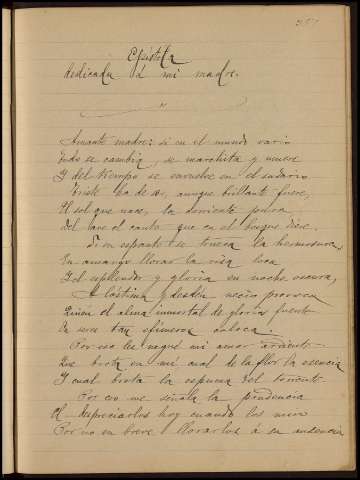 Epístola
dedicada á mi madre.
Amante madre: si en el mundo vario
todo se cambia, se marchita y muere
Y del tiempo se envuelve en el sudario
Triste ha de ser, aunque brillante fuere,
El sol que nace, la corriente pura
Del ave el canto que en el bosque
Si en espanto se torna la hermosura,
En amargo llorar la risa loca
Y el esplendor y gloria en noche oscura,
A lástima y desdén necio provoca
Quien el alma inmortal de gloria
En seres tan efímeros coloca.
Por eso les negué mi amor ardiente
Que brota en mí cual de la flor la esencia
Y cual brota la espuma del torrente
Por eso me señala la prudencia
El despreciarlos hoy cuando los miro
Por no en breve llorarlos á su ausencia